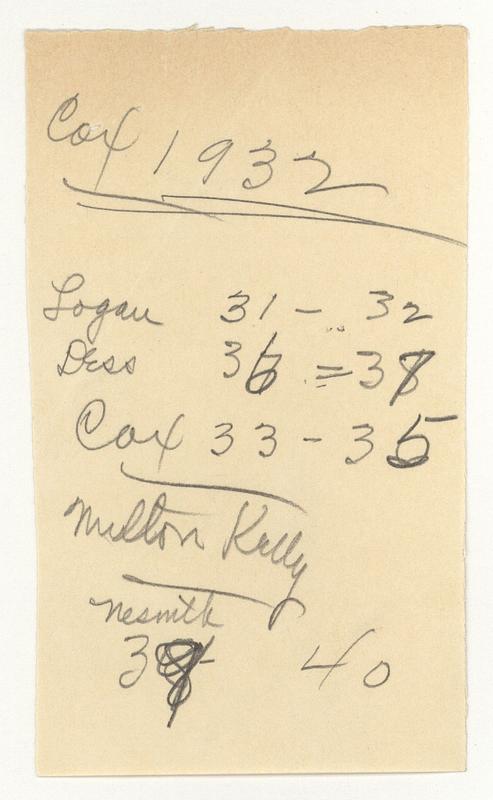 Cox 1932
Logan 31 - 32
Dess 36 = 37
Cox 33 - 35
Milton Kelly
Nesmith
38 40